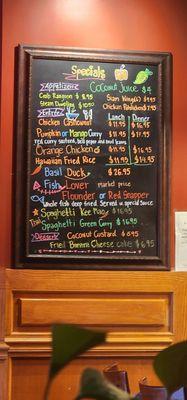 Specials
Appetizers Coconut Juice $4
Crab Rangoon $8.95 Siam Wings(5) $9.95
Steam Dumpling $10.95 Chicken $9.95
Entrées Lunch Dinner
Chicken Coconut $11.95 $16.95
Pumpkin or Mango Curry $11.95 $17.95
red curry sauteed, bell pepper and
Orange Chicken $11.95 $16.95
Hawaiian Fried Rice $11.95 $14.95
Basil Duck $26.95
Fish Lover market price
Flounder or Red Snapper
Whole fish deep fried. Served w special sauce
Spaghetti Kee Mao $16.95
Spaghetti Green Curry $16.95
Desserts Coconut Custard $6.95
Fried Banana Cheese cake $6.95